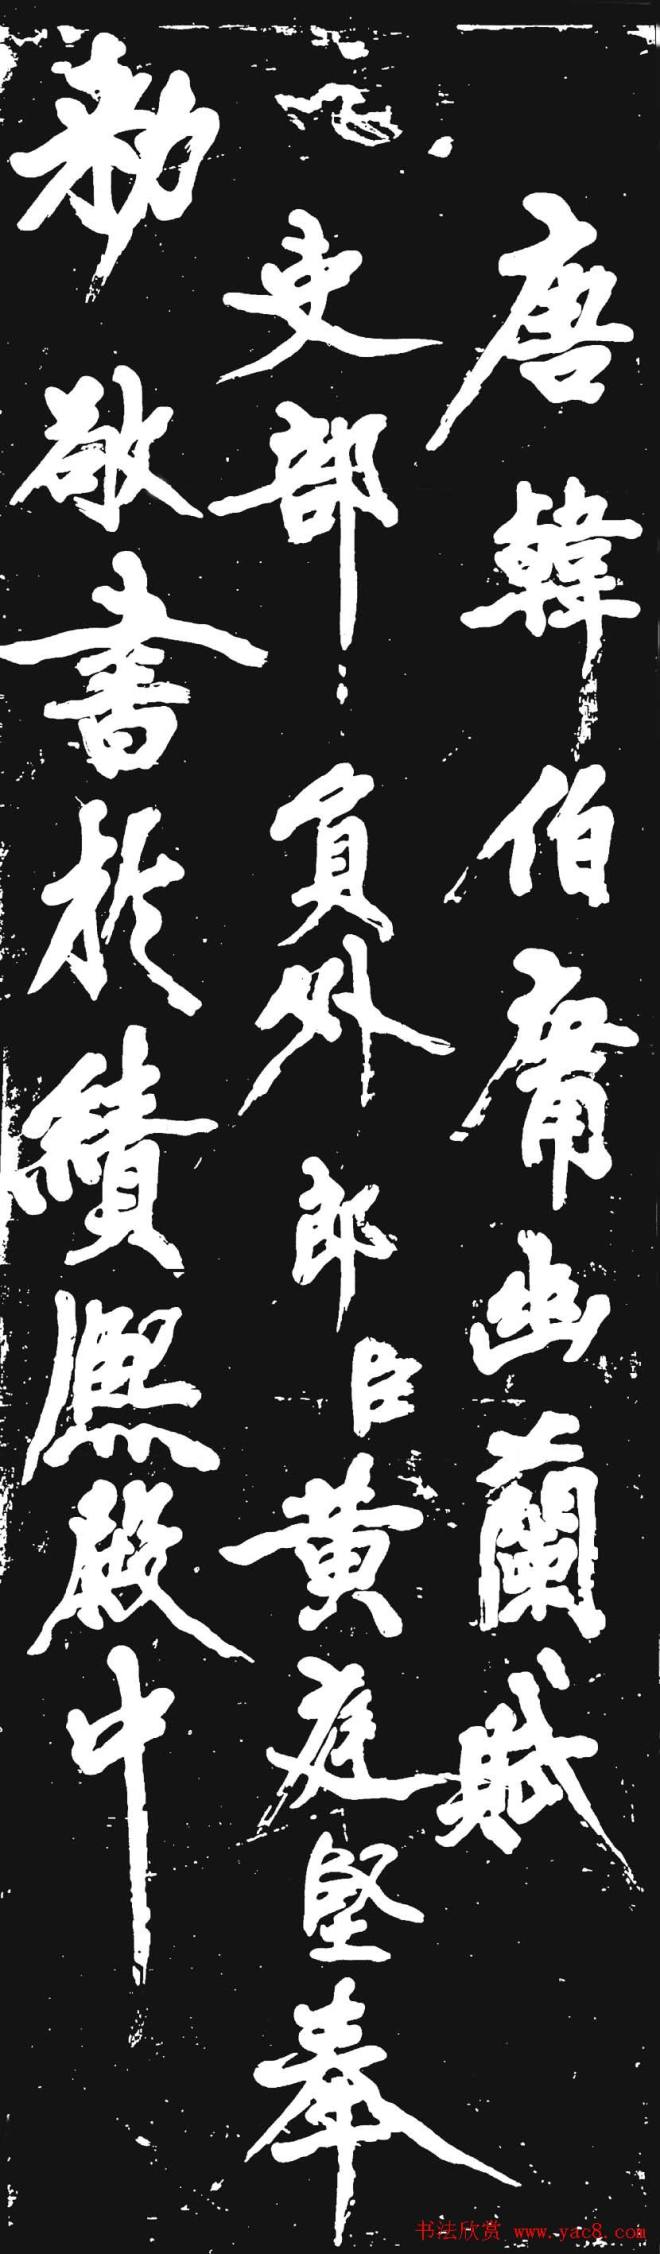 唐韓伯庸幽蘭賦
吏部員外郎臣黃庭堅奉
勅敬書於績熈殿中
书法欣赏 www.yac8.com